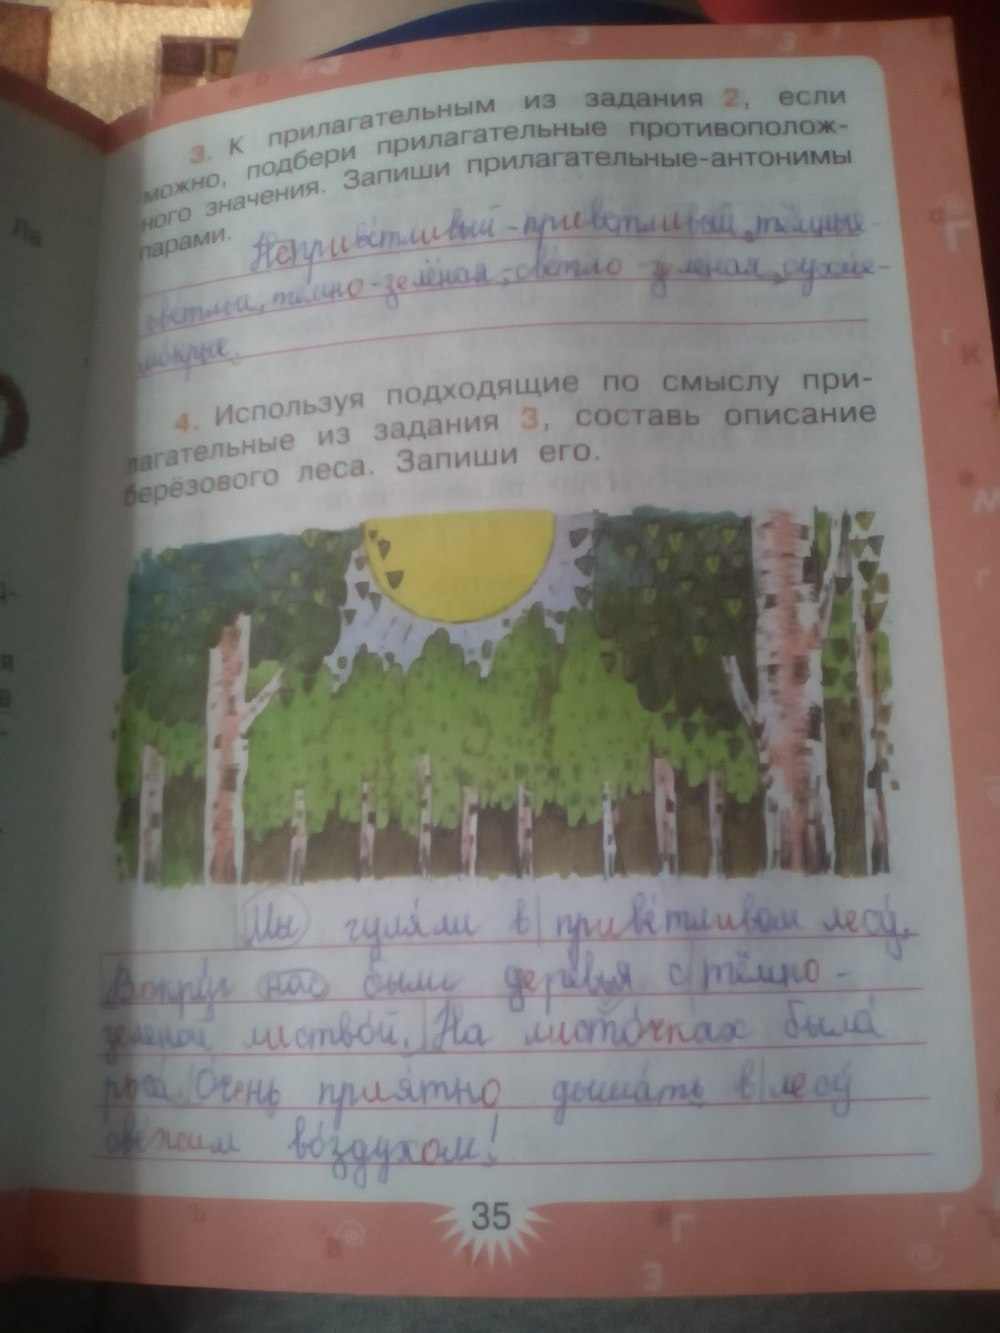 3. К прилагательным из задания 2, если
можно, подбери прилагательные противополож-
ного значения. Запиши прилагательные-антонимы
парами.
Неприветливый - приветливый, тёмные -
светлые, тёмно-зелёная - светло-зелёная, сухие -
мокрые.
4. Используя подходящие по смыслу при-
лагательные из задания 3, составь описание
берёзового леса. Запиши его.
Мы гуляли в приветливом лесу.
Вокруг нас были деревья с тёмно-
зелёной листвой. На листочках была
роса. Очень приятно дышать в лесу
свежим воздухом!
35
Ла